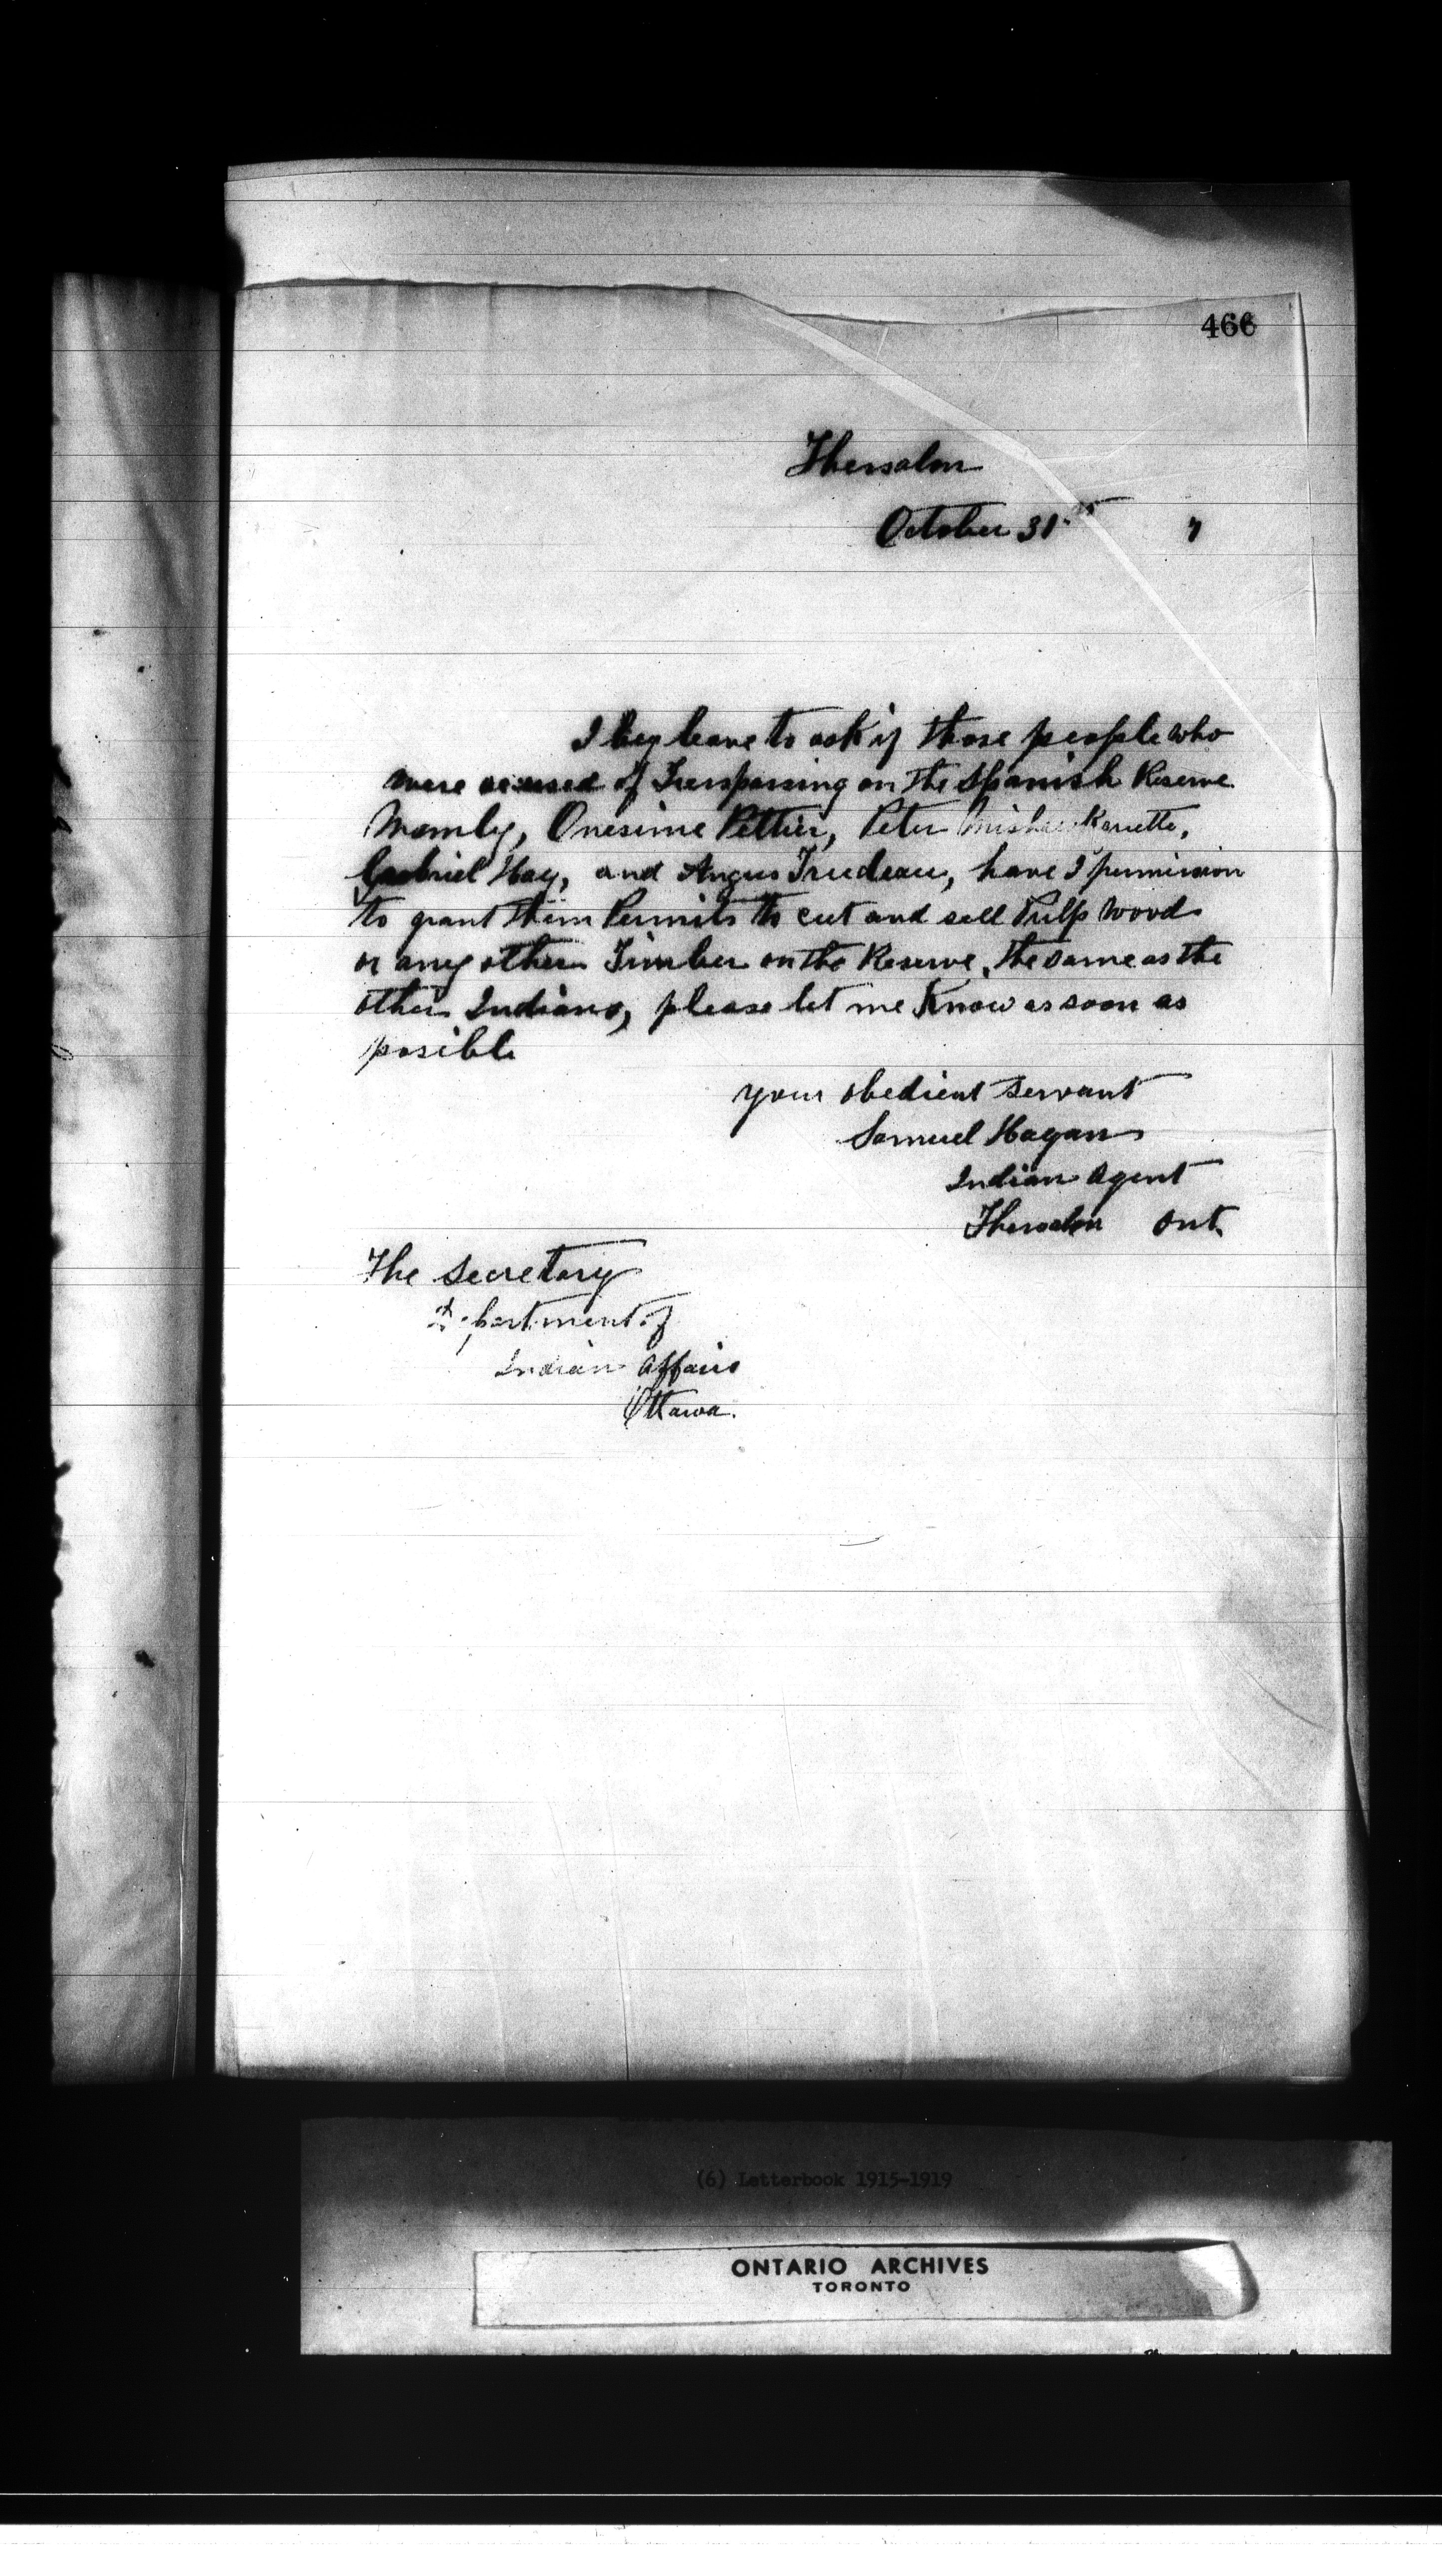 466
Thessalon
October 31st 7
I beg leave to ask if those people who
were accused of Tresspassing on the Spanish Reserve
Namly, Onesime Peltier, Peter
Gabriel Hay, and Angus Trudeau, have I permission
to grant them Permits to cut and sell Pulp Wood
or any other Timber on the Reserve, the same as the
other Indians, please let me Know as soon as
posible
your obedient servant
Samuel Hagan
Indian Agent
Thessalon Ont.
The Secretary
Department of
Indian Affairs
Ottawa.
(6) Letterbook 1915-1919
ONTARIO ARCHIVES
TORONTO